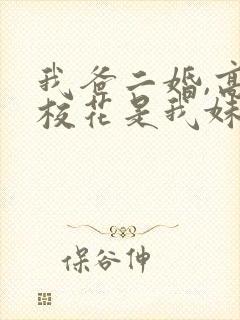 我爸二婚,高
校花是我妹
保谷伸